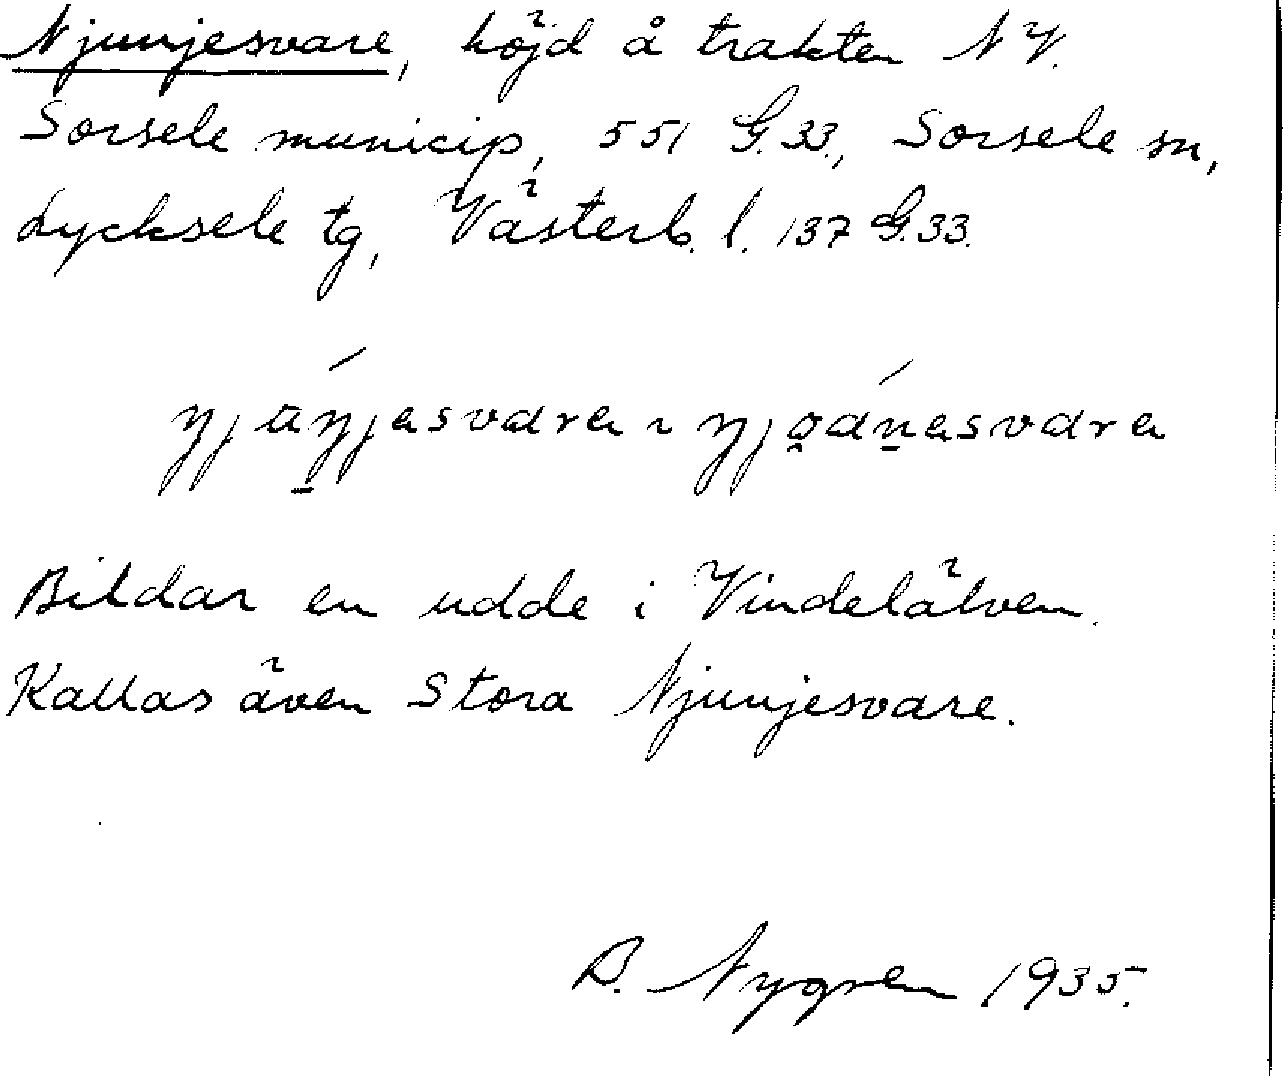 Njunjesvare, höjd å trakten N V.
Sorsele municip, 551 G.33., Sorsele sn,
Lycksele tg, Västerb. l. 137 G.33.
Bildar en udde i Vindelälven.
Kallas även Stora Njunjesvare.
B. Nygren 1935.